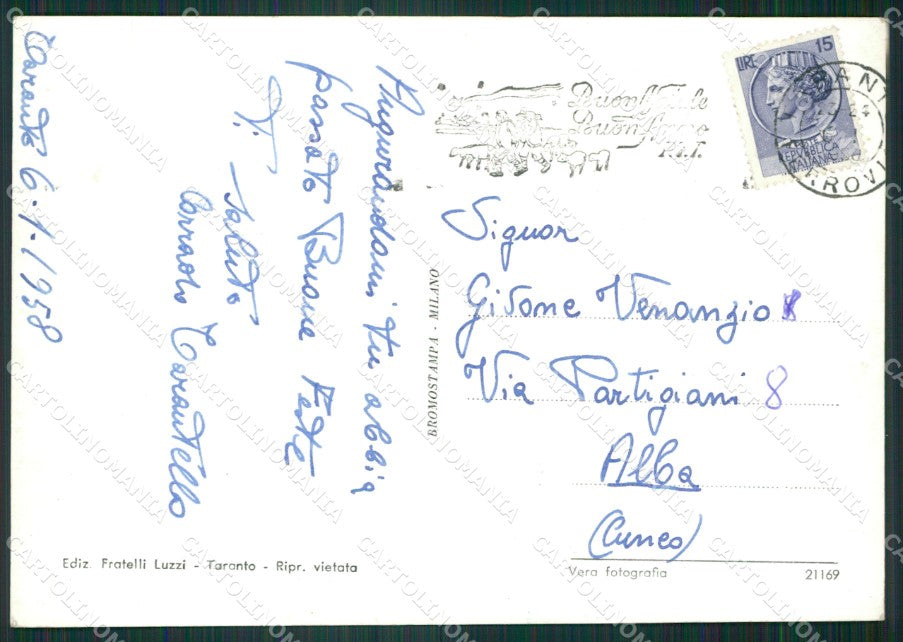 Taranto 6.1.1958
Augurandomi tu abbia
passato Buone Feste
Ti saluto
Corrado Tarantello
LIRE 15
REPVBBLICA
ITALIANA
Buon Natale
Buon Anno
P.T.
Signor
Gisone Venanzio
Via Partigiani 8
Alba
(Cuneo)
BROMOSTAMPA - MILANO
Ediz. Fratelli Luzzi - Taranto - Ripr. vietata
Vera fotografia
21169
CARTOLINOMANIA